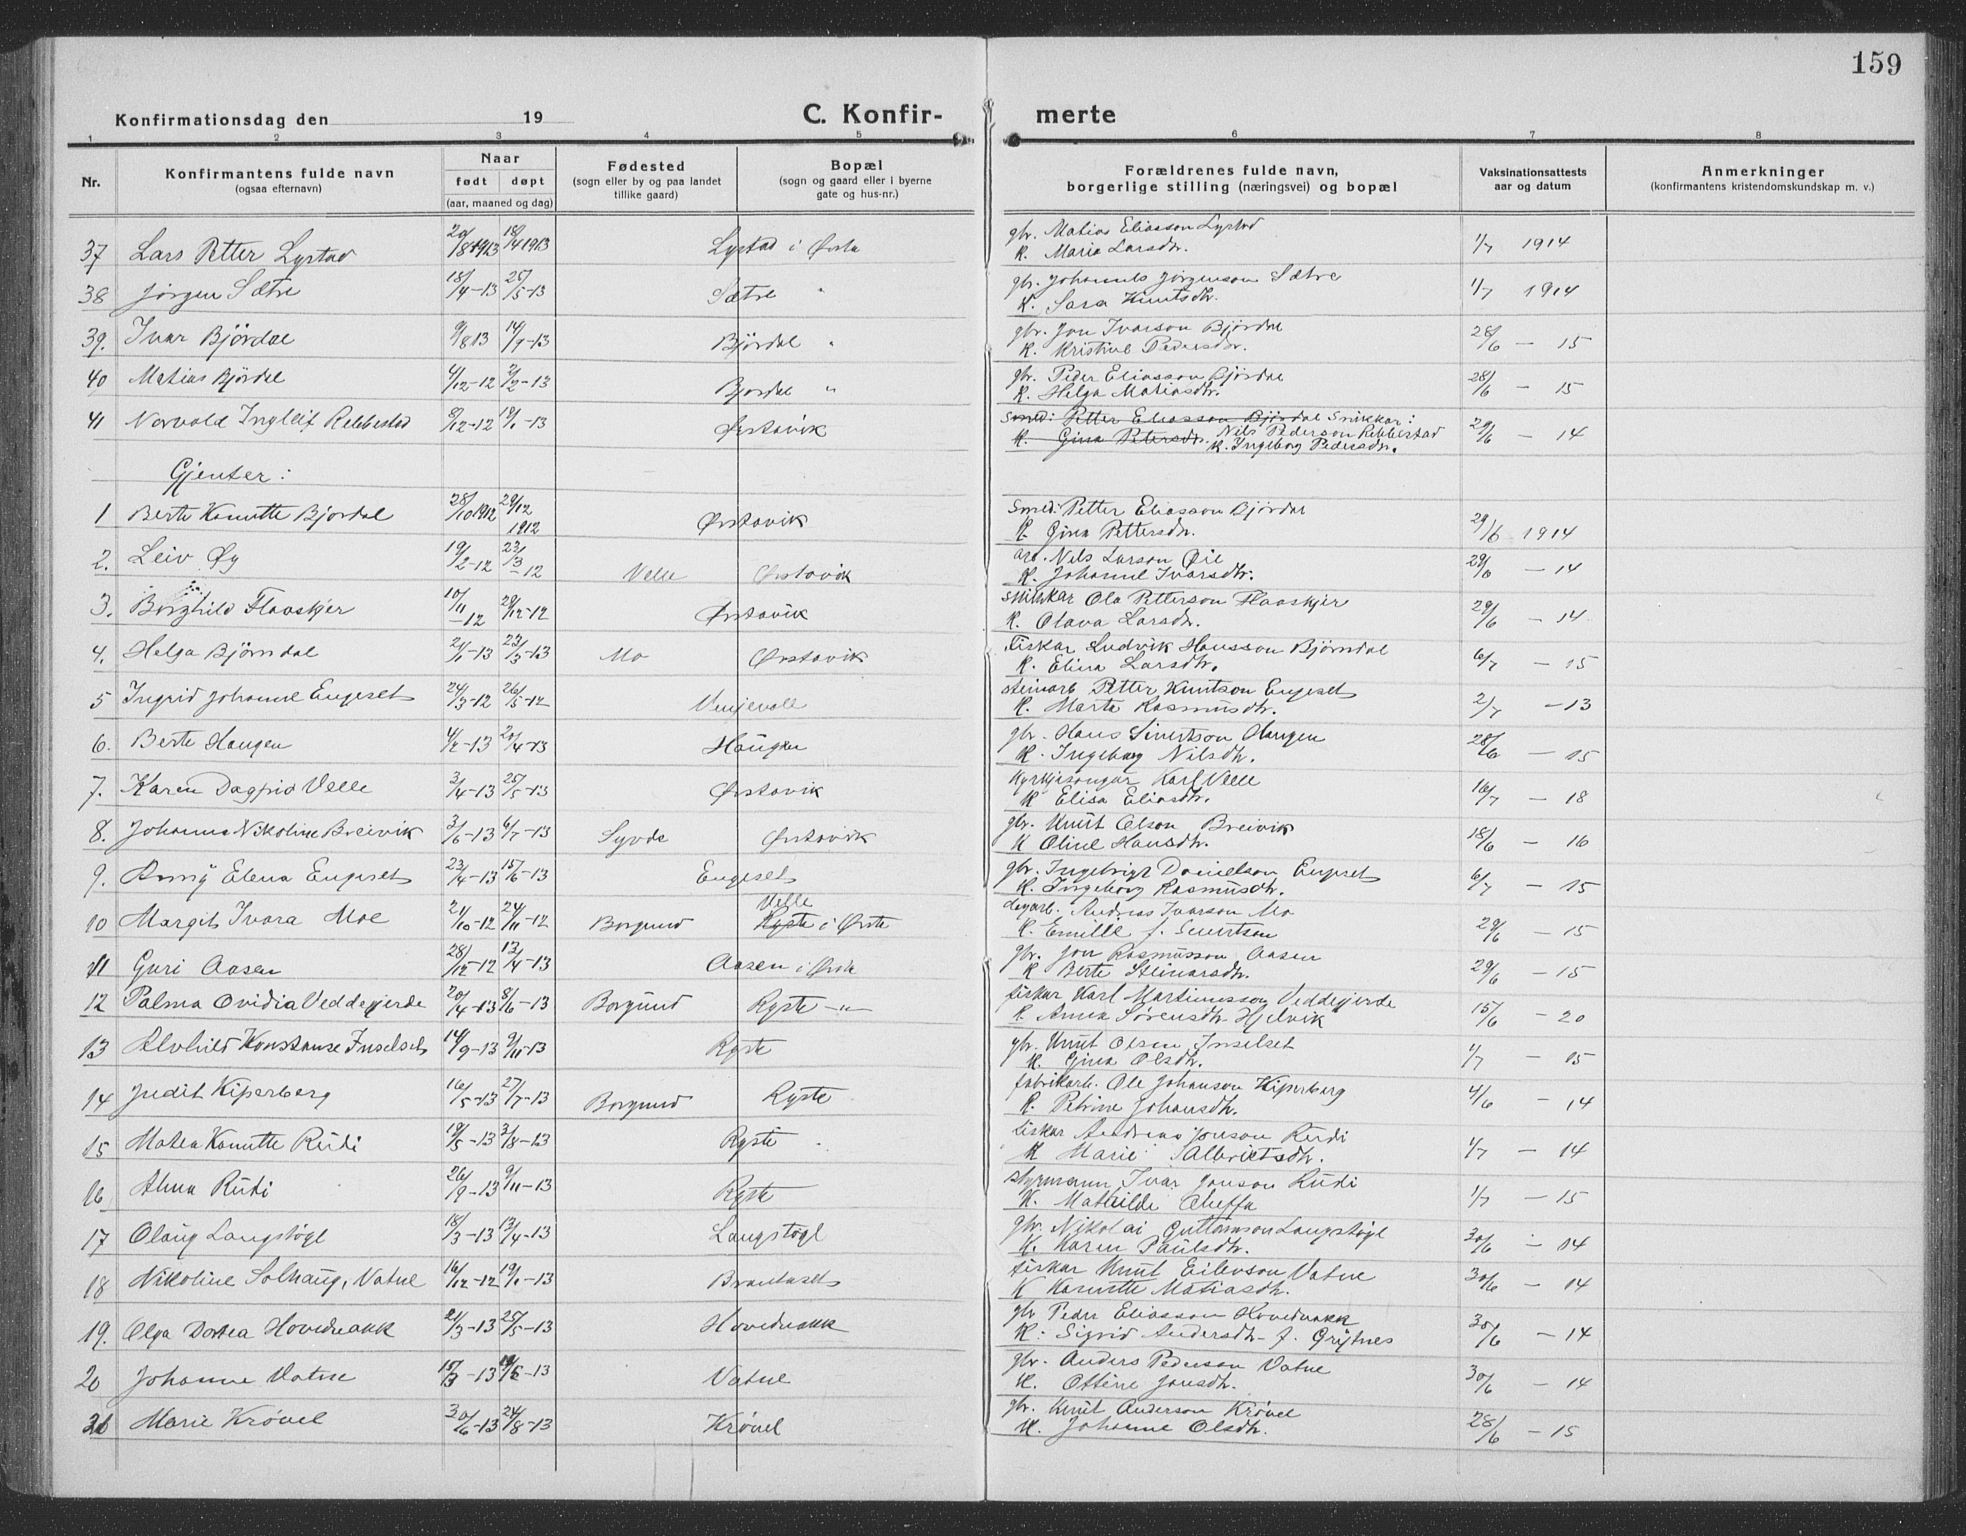 159
Konfirmationsdag den 19
C. Konfir-
merte
1 2 3 4 5 6 7 8
Nr.
Konfirmantens fulde navn
(ogsaa efternavn)
Naar
født døpt
(aar, maaned og dag)
Fødested
(sogn eller by og paa landet
tillike gaard)
Bopæl
(sogn og gaard eller i byerne
gate og hus-nr.)
Forældrenes fulde navn,
borgerlige stilling (næringsvei) og bopæl
Vaksinationsattests
aar og datum
Anmerkninger
(konfirmantens kristendomskundskap m. v.)
37 Lars Petter Lystad Lystad i Ørsta gbr. Matias Eliasson Lystad 1/7 1914
K. Maria Larsdtr.
38 Jørgen Sætre 18/4-13 25/5-13 Sætre " gbr. Johannes Jørgenson Sætre 1/7 1914
K. Sara Knutsdtr.
39. Ivar Bjørdal 14/9-13 Bjørdal " gbr. Jon Ivarson Bjørdal 28/6 - 15
K. Kristine Pedersdtr.
40 Matias Bjørdal 4/12-12 2/2-13 Bjørdal " gbr. Peder Eliasson Bjørdal 28/6 - 15
K. Helga Matiasdtr.
41 Norvald Ingleif Rebbestad 8/12-12 19/1-13 Ørstavik Smed: Petter Eliasson Bjørdal Snikkar: 29/6 - 14
K. Gina Petersdtr. Nils Pederson Rebbestad
K. Ingeborg Pedersdtr.
Gjenter:
1 Berte Kanutte Bjørdal 28/10 1912 29/12 1912 Ørstavik Smed: Petter Eliasson Bjørdal 29/6 1914
K. Gina Pettersdtr.
2. Leiv Øy 19/2-12 23/3-12 Velle Ørstavik arb. Nils Larson Øie 29/6 - 14
K. Johanne Ivarsdtr.
3. Borghild Flaaskjer 10/11-12 29/12-12 Ørstavik Snikkar Ola Petterson Flaaskjer 29/6 - 14
K. Olava Larsdtr.
4. Helga Bjørndal 21/1-13 23/3-13 Mo Ørstavik Fiskar Ludvik Hansson Bjørndal 6/7 - 15
K. Elina Larsdtr.
5 Ingrid Johanne Engeset 24/3-12 26/5-12 Venjevoll steinarb Petter Knutson Engeset 2/7 - 13
K. Marta Rasmusdtr.
6. Berte Haugen 4/2-13 20/4-13 Haugen gbr. Hans Sivertson Haugen 28/6 - 15
K. Ingeborg Nilsdtr.
7. Karen Dagfrid Velle 3/4-13 25/5-13 Ørstavik Kyrkjesongar Karl Velle 16/7 - 18
K Elisa Eliasdtr.
8. Johanna Nikoline Breivik 3/6-13 6/7-13 Syvde Ørstavik gbr. Knut Olson Breivik 18/6 - 16
K Oline Hansdtr.
9. Anny Elena Engeset 23/4-13 15/6-13 Engeset gbr. Ingebrigt Danielson Engeset 6/7 - 15
K. Ingeborg Rasmusdtr.
10 Margit Ivara Moe 21/10-12 24/11-12 Borgund Velle Ryste i Ørsta dagarb. Andreas Ivarson Mo 29/6 - 15
K. Emilie f. Sivertsen
11 Guri Aasen 28/12-12 13/4-13 Aasen i Ørsta gbr. Jon Rasmusson Aasen 29/6 - 15
K Berte Steinarsdtr.
12 Palma Ovidia Veddegjerde 20/4-13 8/6-13 Borgund Ryste -"- fiskar Karl Martinusson Veddegjerde 15/6 - 20
K. Anna Sørensdtr. Hjelvik
13 Alvhild Konstanse Inselset 14/9-13 9/11-13 Ryste gbr. Knut Olsen Inselset 1/7 - 15
K. Gina Olsdtr.
14 Judit Kiperberg 16/5-13 27/7-13 Borgund Ryste fabrikarb. Ole Johanson Kiperberg 4/6 - 14
K. Petrine Johansdtr.
15 Matea Kanutte Rudi 19/5-13 3/8-13 Ryste fiskar Andreas Jonson Rudi 1/7 - 14
K Marie Albrietsdtr.
16 Alma Rudi 26/9-13 9/11-13 Ryste styrmann Ivar Jonson Rudi 1/7 - 15
K. Mathilde
17 Olaug Langstøgl 18/3-13 13/4-13 Langstøgl gbr. Nikolai Guttormson Langstøgl 30/6 - 14
K. Karen Paulsdtr.
18 Nikoline Solhaug, Vatne 16/12-12 19/1-13 Brautaset fiskar Knut Eilevson Vatne 30/6 - 14
K Kanutte Matiasdtr.
19. Olga Dortea Hovedneakk 21/3-13 25/5-13 Hovednakk gbr Peder Eliasson Hovednakk 30/6 - 14
K: Sigrid Andersdtr f. Grytnes
20 Johanne Vatne Vatne gbr. Anders Pederson Vatne 30/6 - 14
K. Ottine Jonsdtr.
21 Marie Krøvel 30/6-13 24/8-13 Krøvel gbr. Knut Anderson Krøvel 28/6 - 15
K. Johanne Olsdtr.